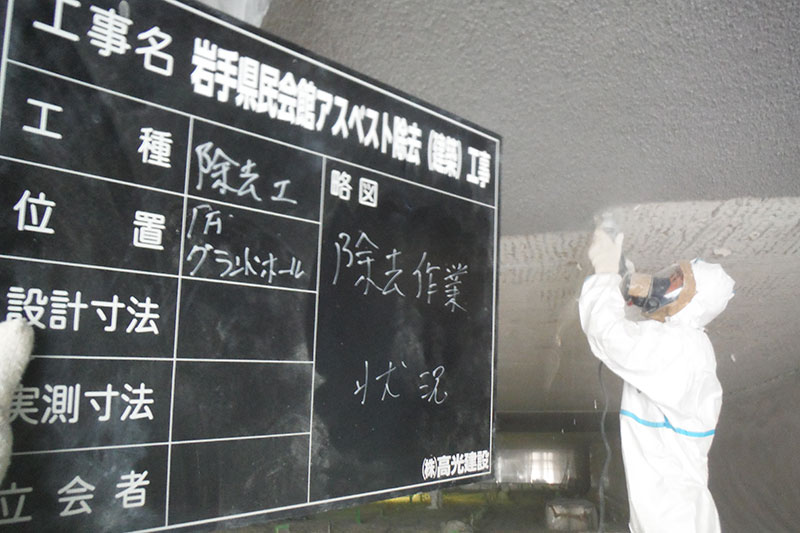 工事名 岩手県民会館アスベスト除去(建築)工事
工種 除去工
位置 1F
グランドホール
設計寸法
実測寸法
立会者
略図
除去作業
状況
(株)高光建設